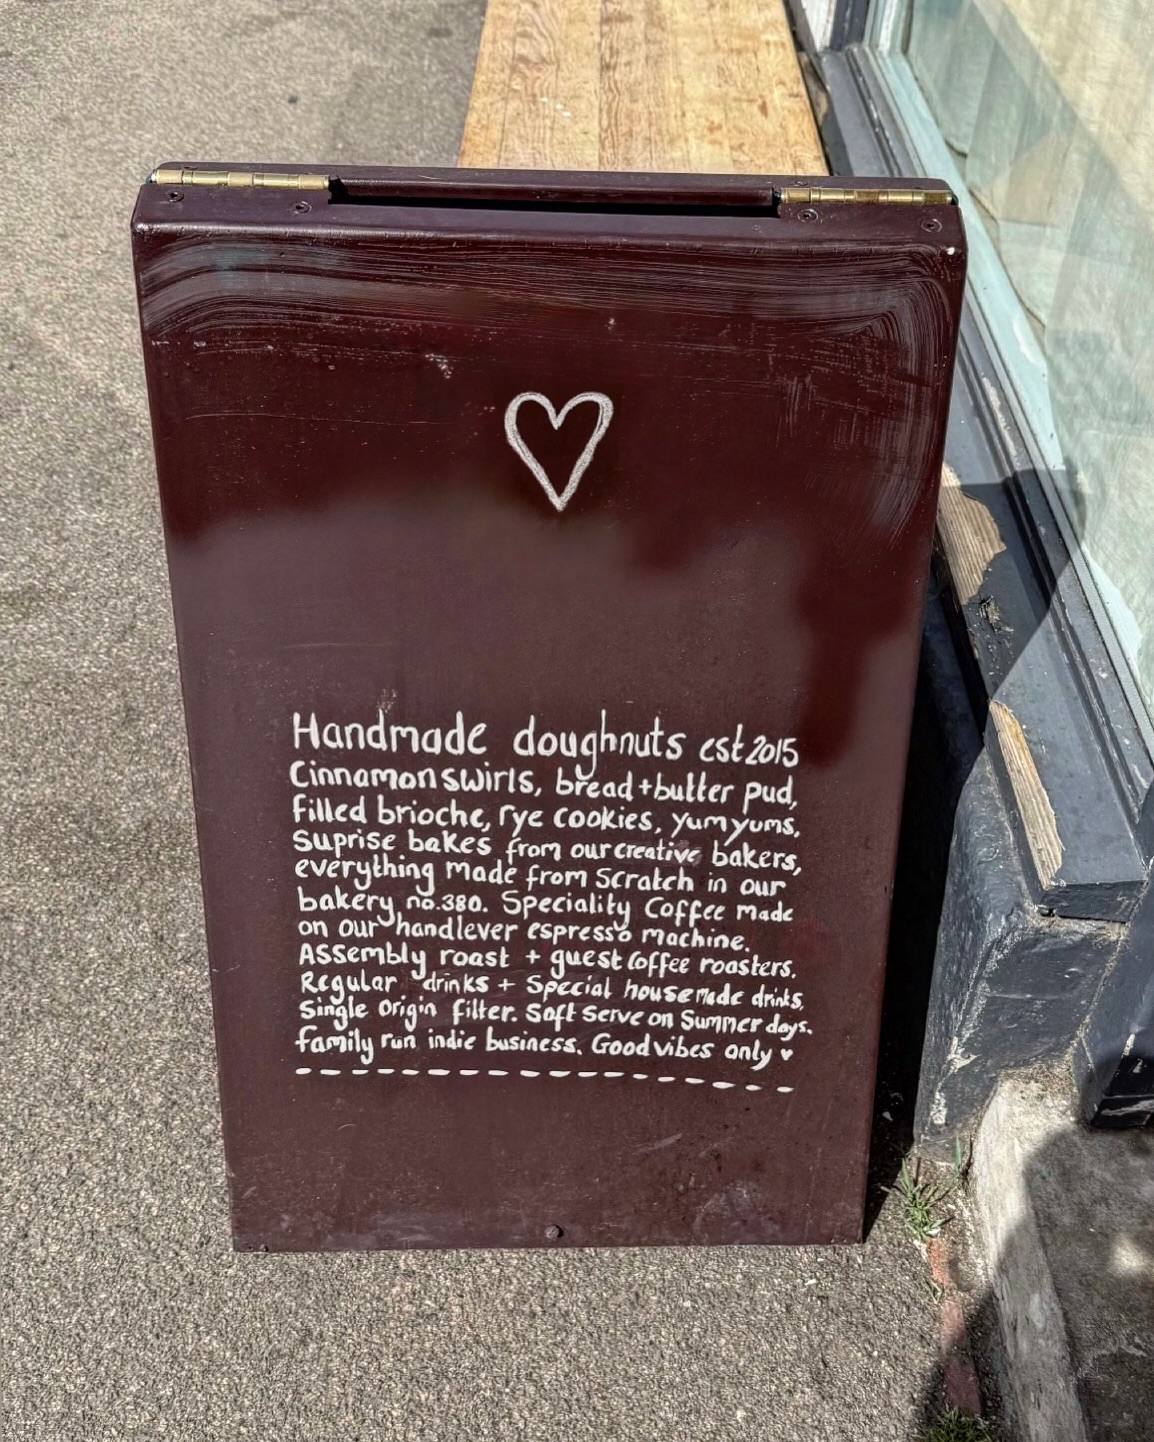 Handmade doughnuts est 2015
Cinnamon swirls, bread + butter pud,
filled brioche, rye cookies, yumyums,
Suprise bakes from our creative bakers,
everything made from Scratch in our
bakery no.380. Speciality Coffee made
on our handlever espresso machine.
Assembly roast + guest Coffee roasters.
Regular drinks + Special housemade drinks,
Single Origin filter. Soft Serve on Summer days.
family run indie business. Good vibes only ♥